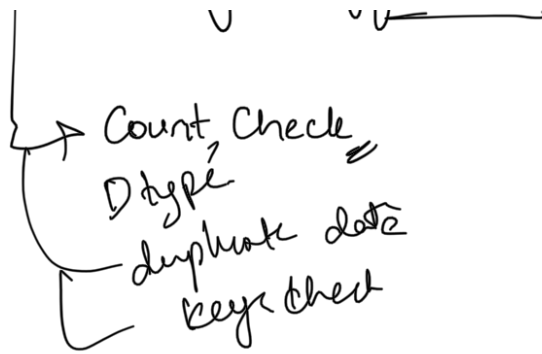 Count, Check
Dtype
duplicate date
keys check